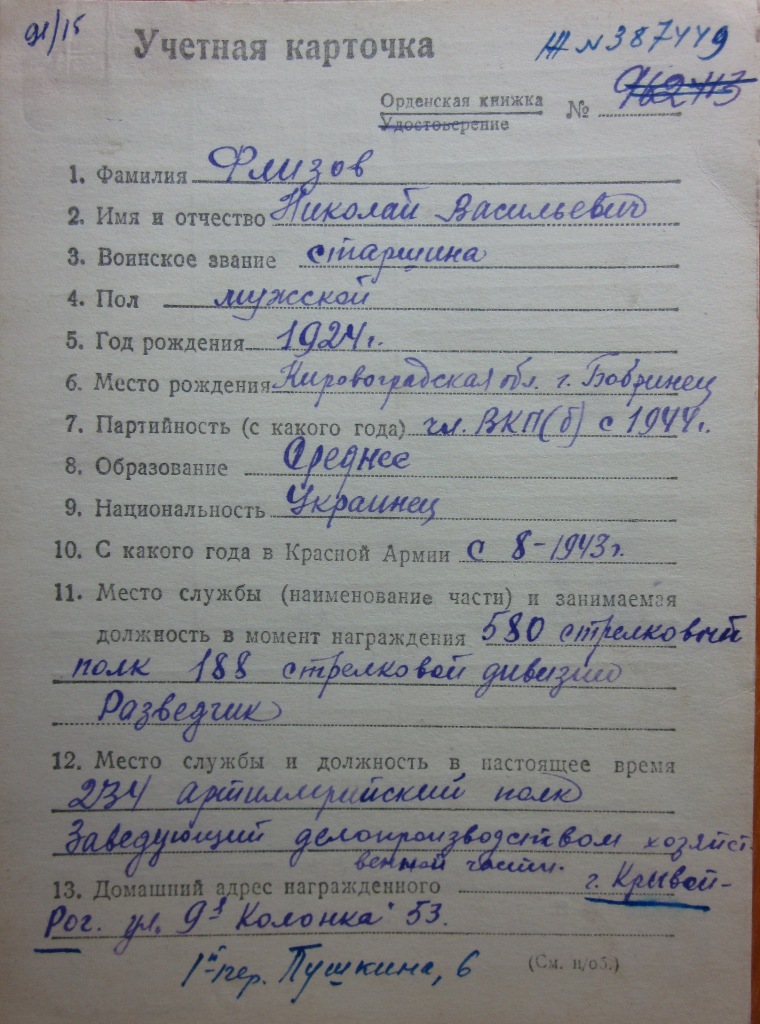 91/15
Учетная карточка
Ж № 387449
Орденская книжка
Удостоверение
№
1. Фамилия Флизов
2. Имя и отчество Николай Васильевич
3. Воинское звание старшина
4. Пол мужской
5. Год рождения 1924г.
6. Место рождения Кировоградская обл. г. Бобринец
7. Партийность (с какого года) чл. ВКП(б) с 1944г.
8. Образование Среднее
9. Национальность Украинец
10. С какого года в Красной Армии с 8-1943г.
11. Место службы (наименование части) и занимаемая
должность в момент награждения 580 стрелковый
полк 188 стрелковой дивизии
Разведчик
12. Место службы и должность в настоящее время
234 артиллерийский полк
Заведующий делопроизводством хозяйст-
венной части.
13. Домашний адрес награжденного г. Кривой-
Рог. ул. 9я Колонка 53.
1й пер. Пушкина, 6
(См. н/об.)